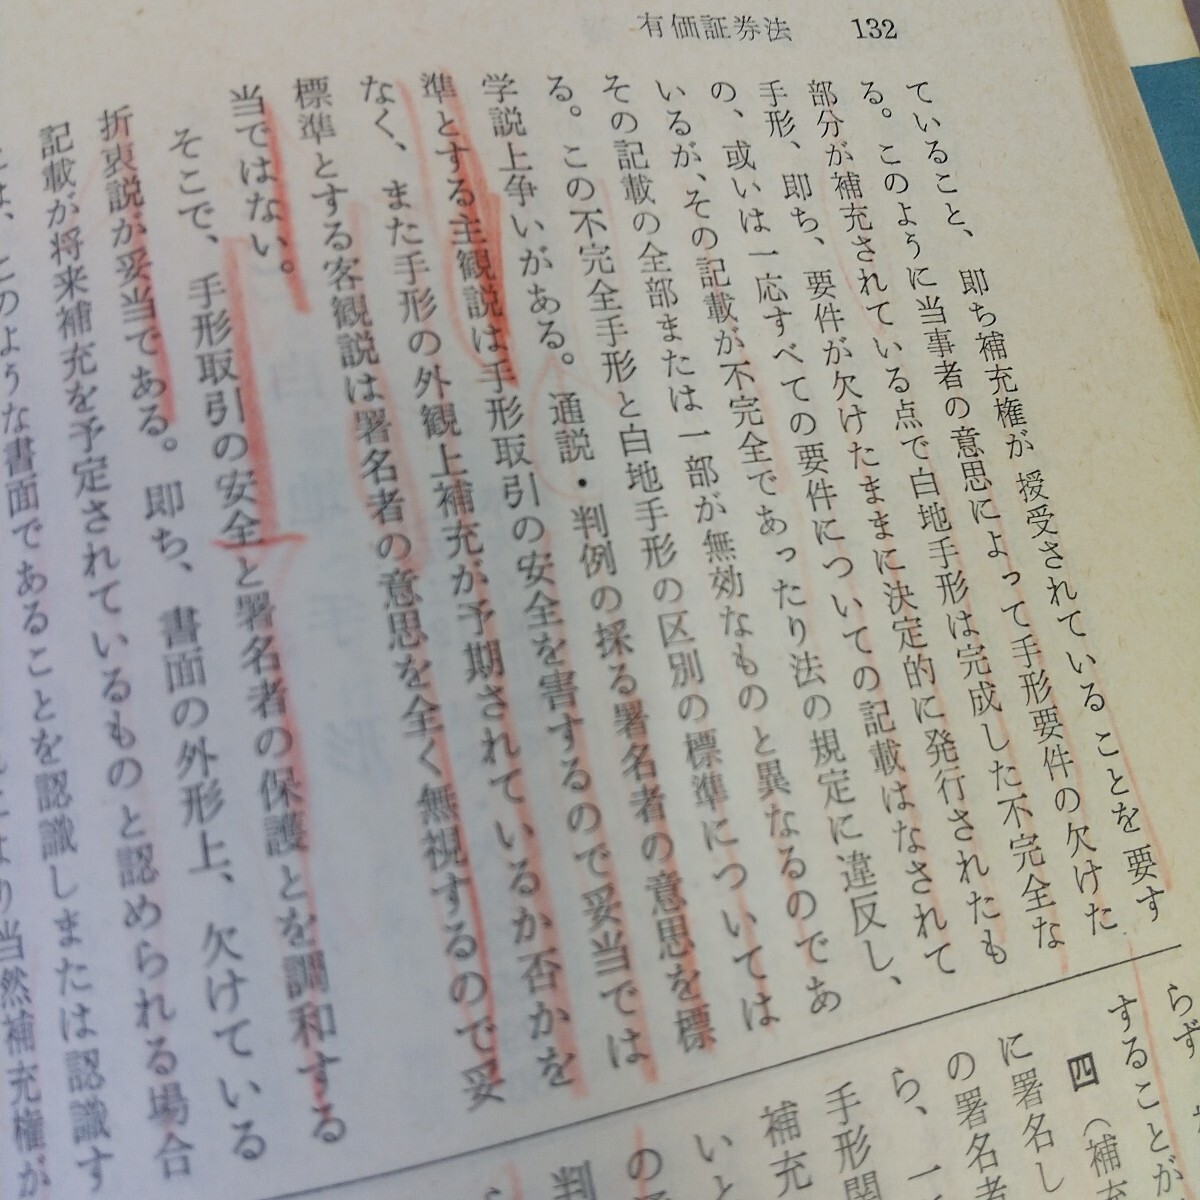 有価証券法　132
ていること、即ち補充権が授受されていることを要す
る。このように当事者の意思によって手形要件の欠けた
部分が補充されている点で白地手形は完成した不完全な
手形、即ち、要件が欠けたままに決定的に発行されたも
の、或いは一応すべての要件についての記載はなされて
いるが、その記載が不完全であったり法の規定に違反し、
その記載の全部または一部が無効なものと異なるのであ
る。この不完全手形と白地手形の区別の標準については
学説上争いがある。通説・判例の採る署名者の意思を標
準とする主観説は手形取引の安全を害するので妥当では
なく、また手形の外観上補充が予期されているか否かを
標準とする客観説は署名者の意思を全く無視するので妥
当ではない。
そこで、手形取引の安全と署名者の保護とを調和する
折衷説が妥当である。即ち、書面の外形上、欠けている
記載が将来補充を予定されているものと認められる場合
このような書面であることを認識しまたは認識す
り当然補充権が
らず
することが
四（補充
に署名し
の署名者
ら、一
手形関
補充
いと
の
判